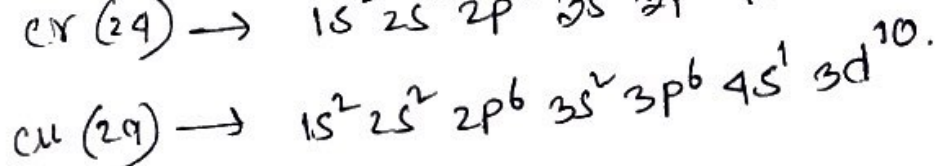 Cr (24) → 1s 2s 2p 3s
Cu (29) → 1s² 2s² 2p⁶ 3s² 3p⁶ 4s¹ 3d¹⁰.